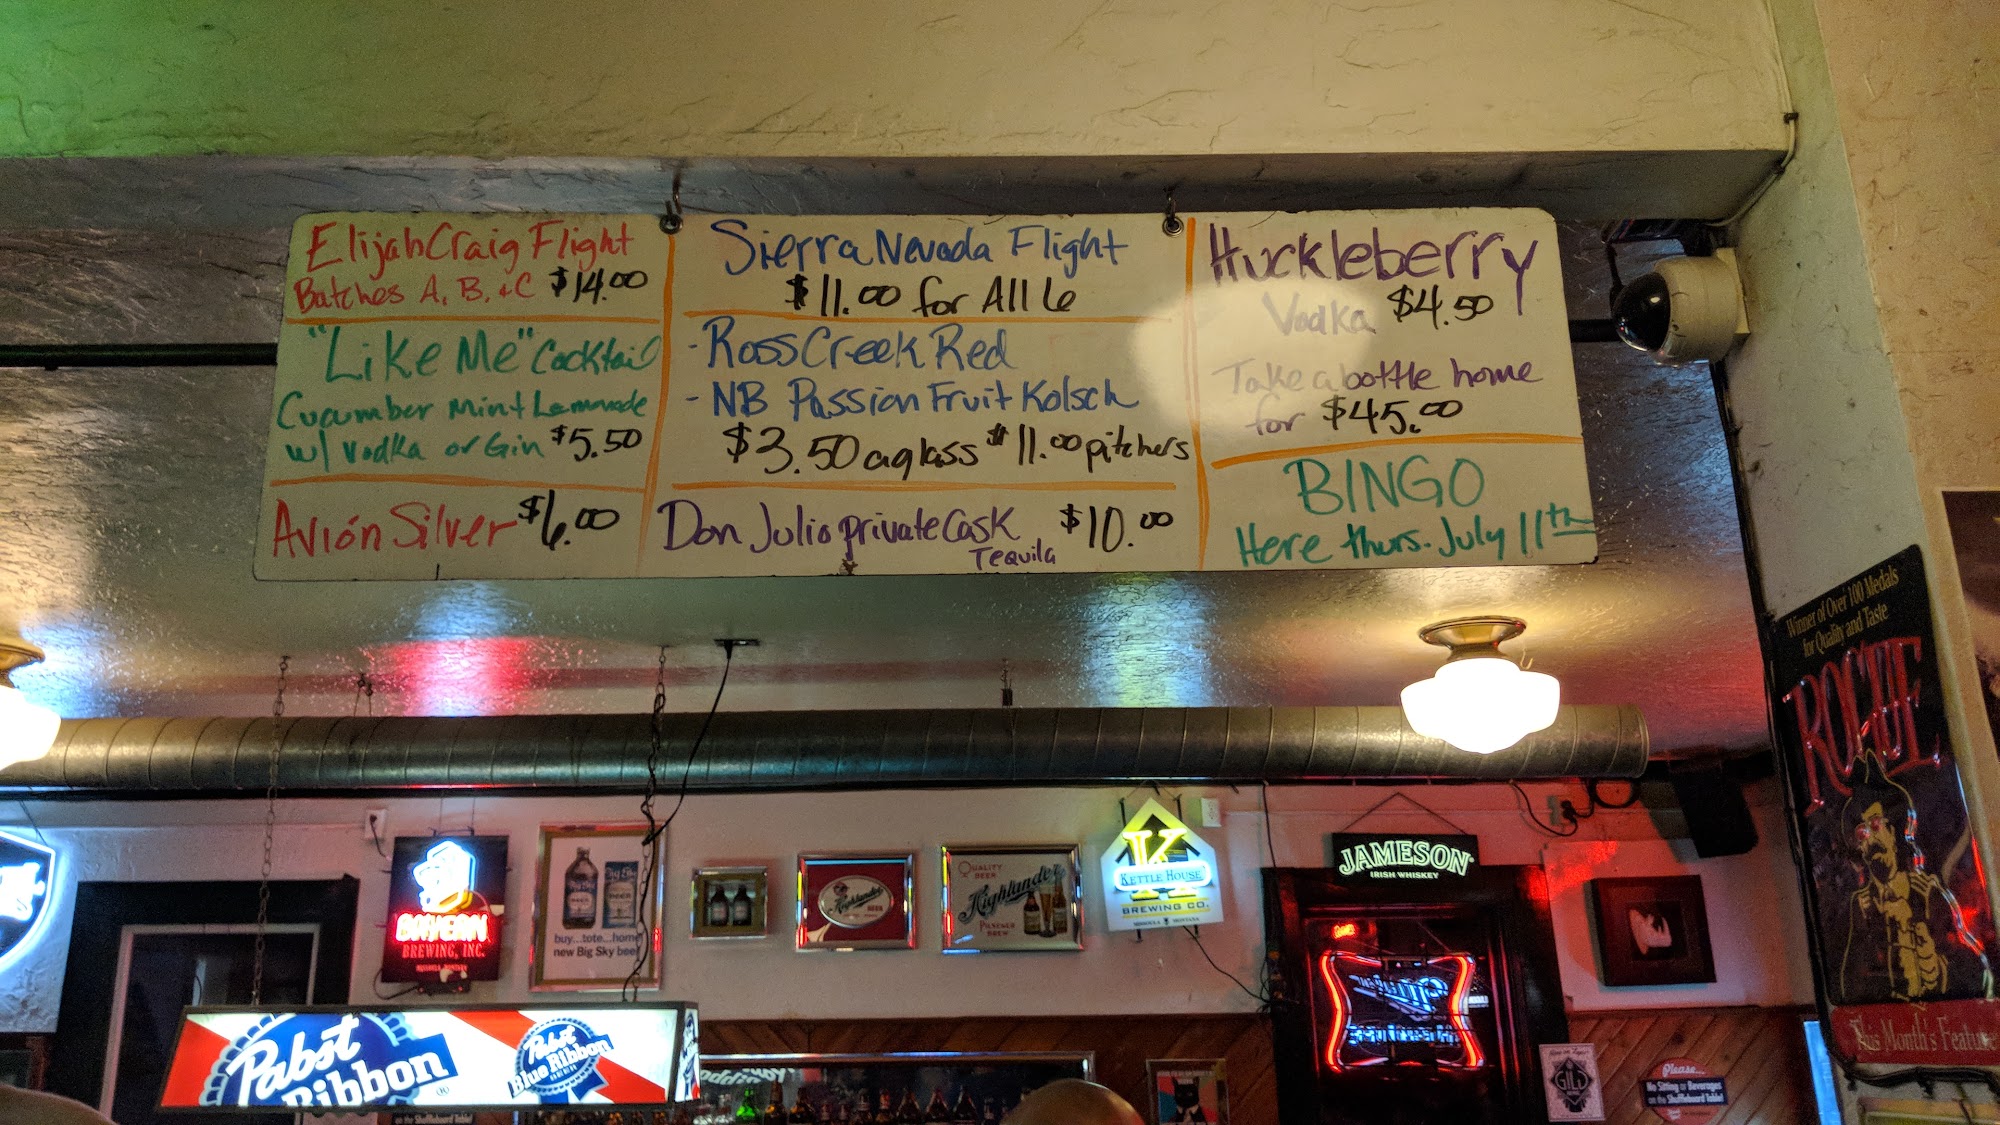 Elijah Craig Flight
Batches A, B, + C $14.00
"Like Me" Cocktail
Cucumber Mint Lemonade
w/ Vodka or Gin $5.50
Avión Silver $6.00
Sierra Nevada Flight
$11.00 for All 6
- Ross Creek Red
- NB Passion Fruit Kolsch
$3.50 a glass $11.00 pitchers
Don Julio private Cask $10.00
Tequila
Huckleberry
Vodka $4.50
Take a bottle home
for $45.00
BINGO
Here thurs. July 11th
Winner of Over 100 Medals
for Quality and Taste
ROGUE
This Month's Feature
BAYERN
BREWING, INC.
MISSOULA, MONTANA
buy...tote...home
new Big Sky beer
Highlander
BEER
QUALITY
BEER
Highlander
PILSENER
BREW
K
KETTLE HOUSE
BREWING CO.
MISSOULA MONTANA
JAMESON
IRISH WHISKEY
Pabst
Ribbon
Pabst
Blue Ribbon
GILD
Please...
No Sitting or Beverages
on the Shuffleboard Table!